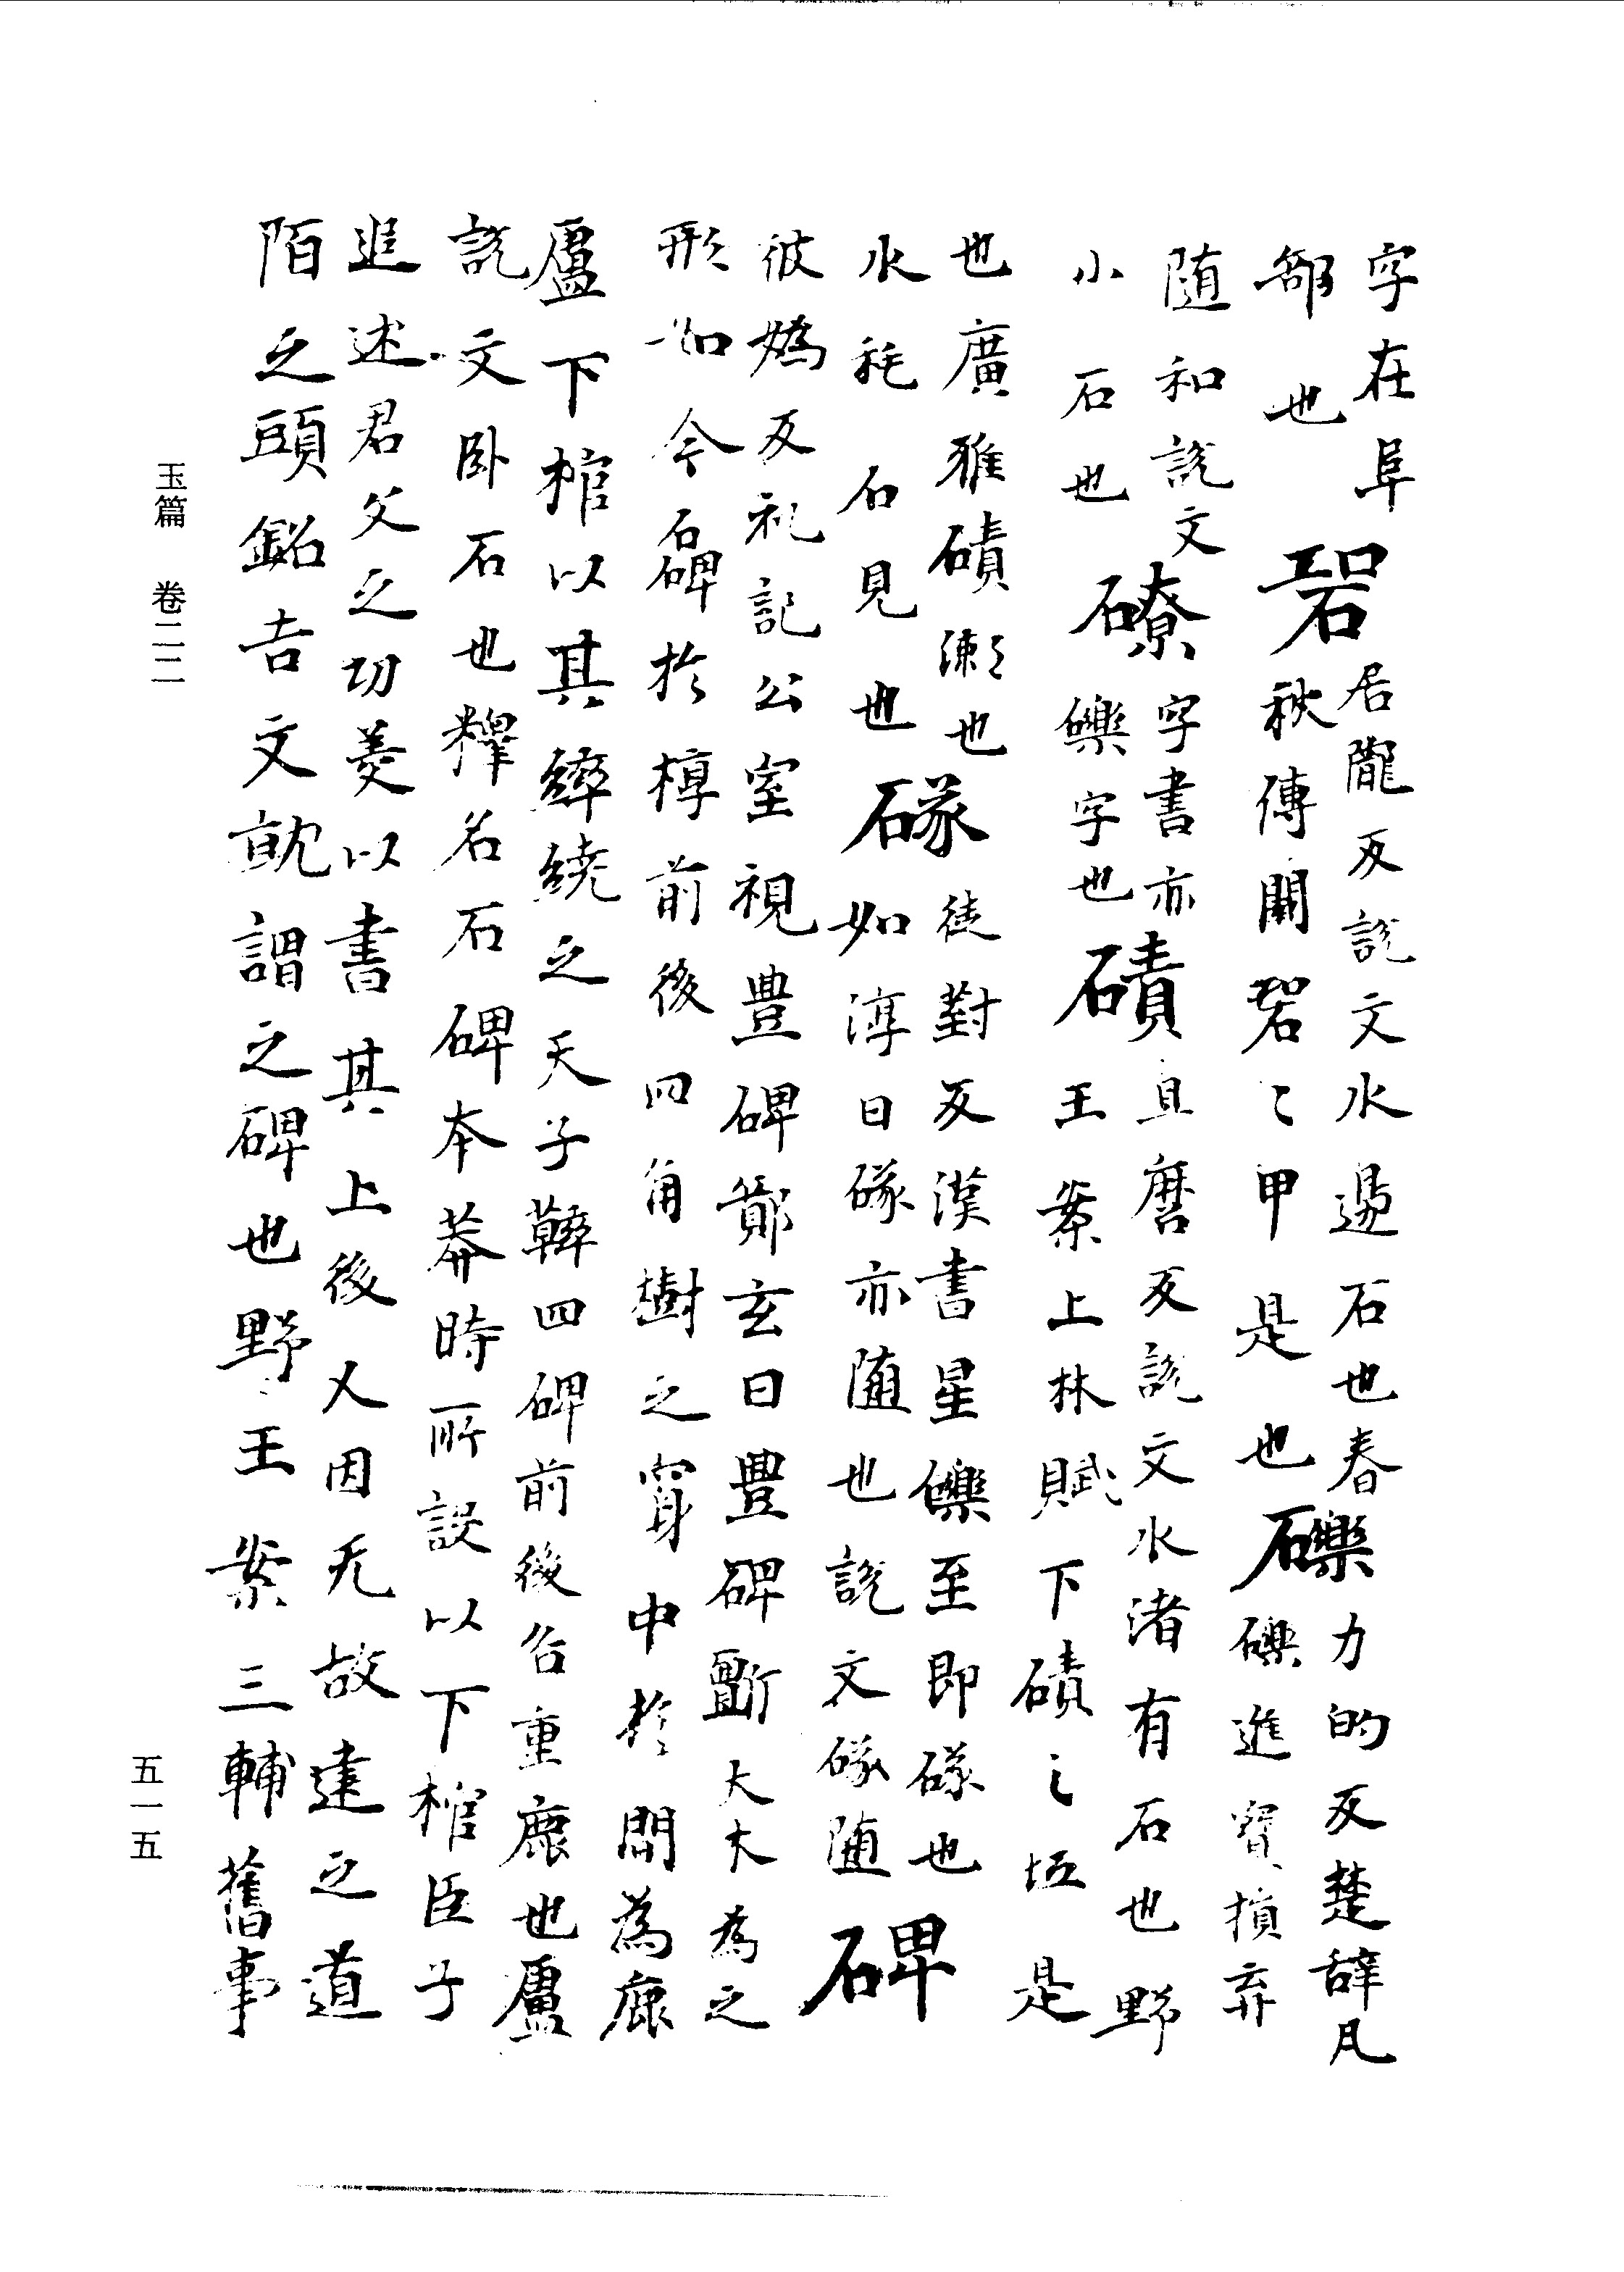 字在阜
部也
䂬
居隴反說文水邊石也春
秋傳闕䂬〻甲是也
礫
力的反楚辭凡
礫進寶損弃
隨和說文
小石也
䃮
字書亦
礫字也
磧
且磨反說文水渚有石也野
王案上林賦下磧〻坻是
也廣雅磧瀨也
水秏石見也
䃍
徒對反漢書星礫至即䃍也
如淳曰䃍亦隨也說文䃍隨
碑
彼媯反礼記公室視豊碑鄭玄曰豊碑斵大木為之
形如今石碑於椁前後四角樹之穿中於間為鹿
盧下棺以其繂繞之天子鞸四碑前後各重鹿也盧
說文卧石也釋名石碑本莽時所設以下棺臣子
追述君父之功美以書其上後人因无故建之道
陌之頭銘吉文就謂之碑也野王案三輔舊事
玉篇 卷二二
五一五